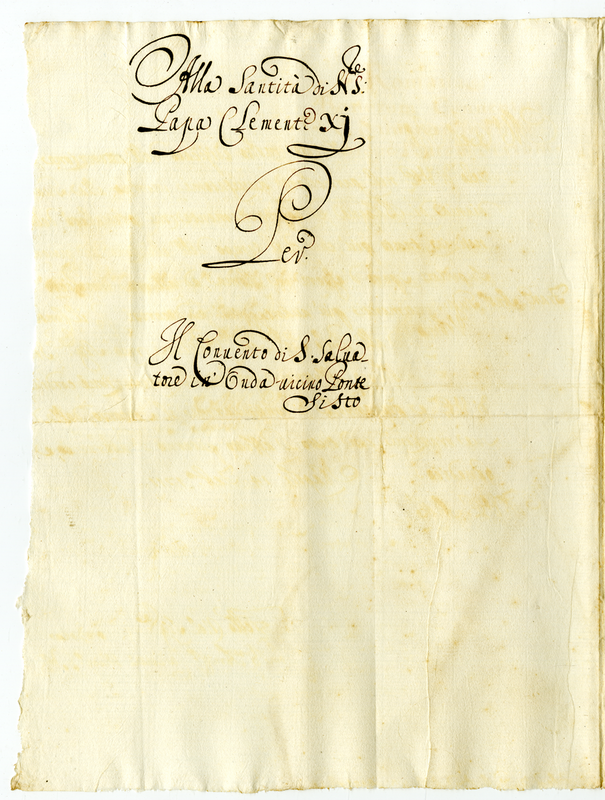 Alla Santità di N: S:re
Papa Clemente XJ
Per
Il Conuento di S. Salua-
tore in Onda uicino Ponte
Sisto